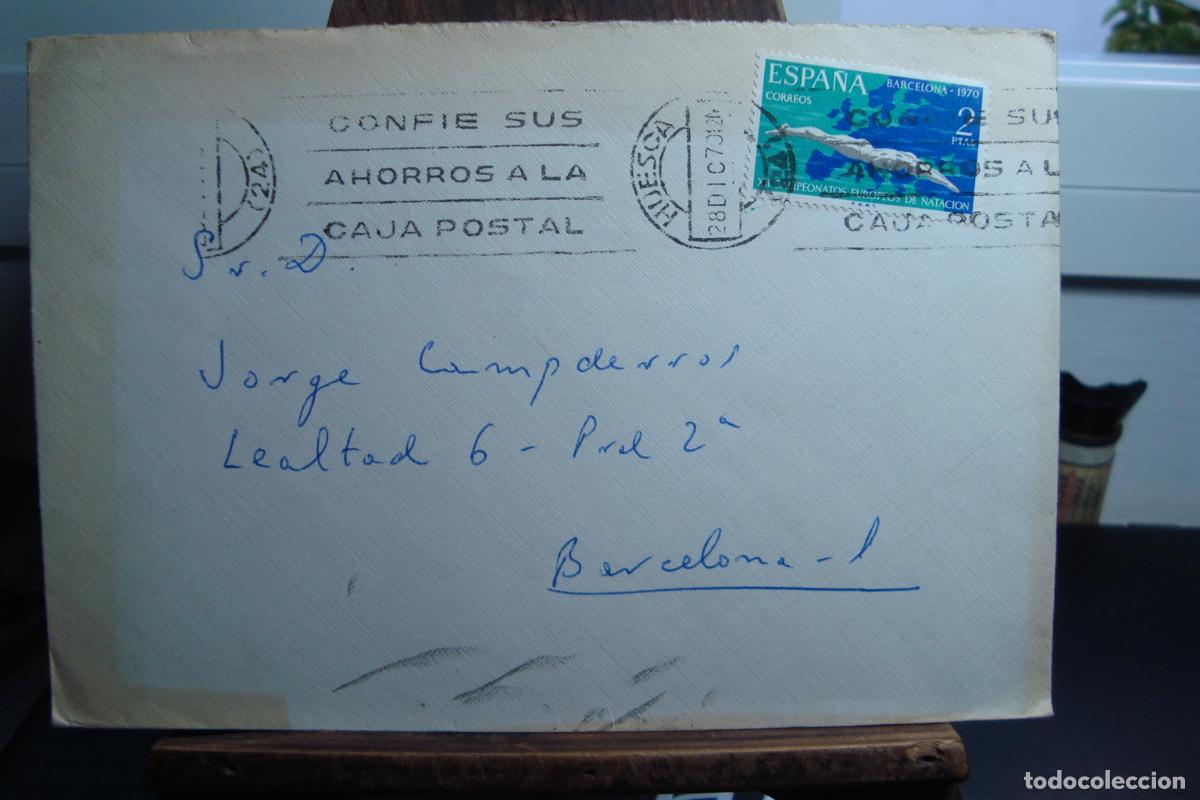 ESPAÑA
BARCELONA - 1970
CORREOS
2
PTAS
CAMPEONATOS EUROPEOS DE NATACION
CONFIE SUS
AHORROS A LA
CAJA POSTAL
(24)
HUESCA
28 DIC 70
CONFIE SUS
AHORROS A L
CAJA POSTA
Sr. D.
Jorge Campderros
Lealtad 6 - Pral 2ª
Barcelona - 1
todocoleccion